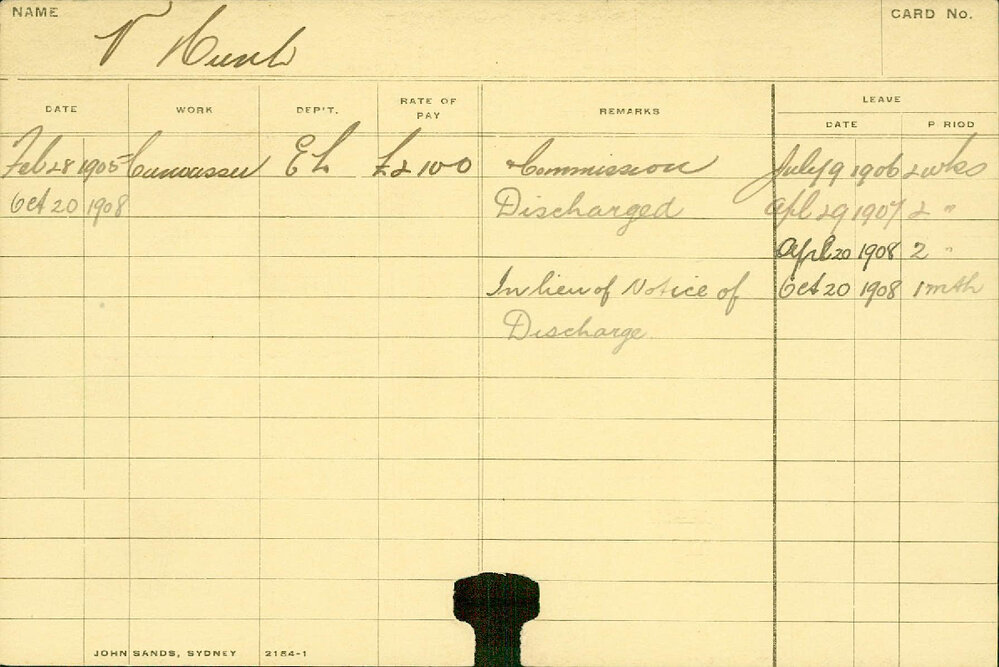 NAME
V Hunt
CARD No.
DATE WORK DEP'T. RATE OF PAY REMARKS LEAVE
DATE P RIOD
Feb 28 1905 Canvasser EL £2 10 0 Commission July 9 1906 2 wks
Oct 20 1908 Discharged Apl 29 1907 2 "
Apl 20 1908 2 "
In lieu of Notice of Oct 20 1908 1 mth
Discharge
JOHN SANDS, SYDNEY 2154-1